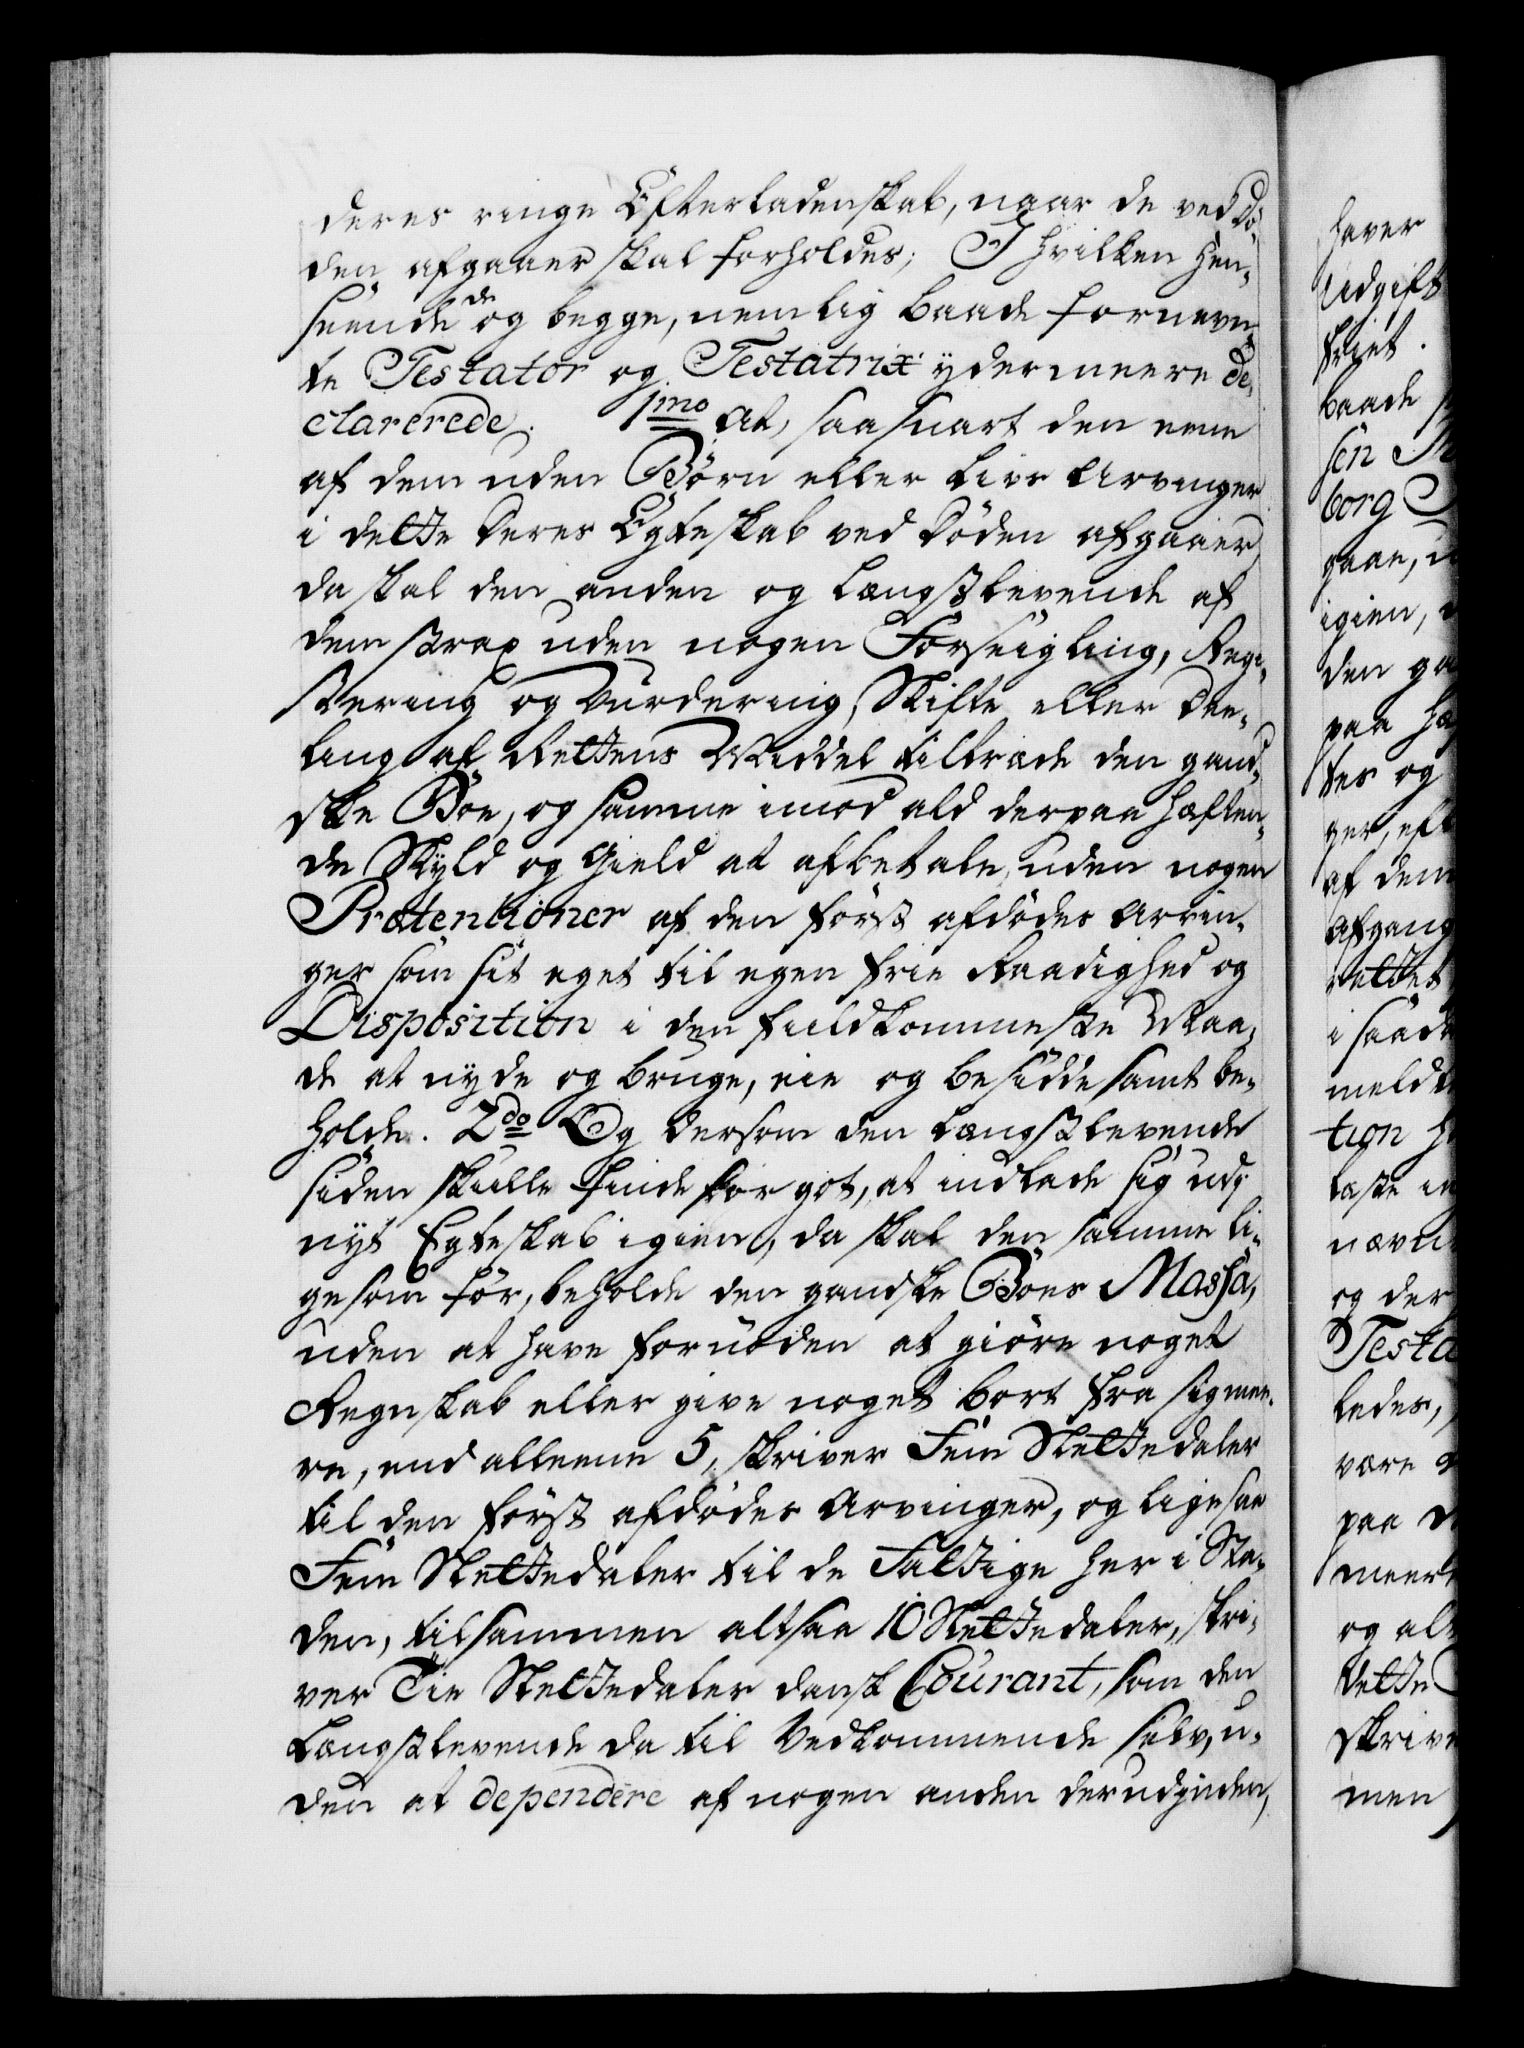 deres ringe Efterladenskab, naar de ved Dø-
den afgaaer skal forholdes; I hvilken Hen-
seende de og begge, nemlig baade fornevn-
te Testator og Testatrix ydermeere de-
clarerede. 1mo At, saasnart den eene
af dem uden Børn eller Livs Arvinger
i dette Deres Egteskab ved Døden afgaaer
da skal den anden og Længstlevende af
dem strax uden nogen Forseigling, Regi-
stering og Vurdering, Skifte eller Dee-
ling af Rettens Middel tiltræde den gand-
ske Boe, og samme imod ald derpaa hæften-
de Skyld og Gield at afbetale, uden nogen
Prætentioner af den først afdødes Arvin-
ger som sit eget til egen frie Raadighed og
Disposition i den fuldkommeste Maa-
de at nyde og bruge, eie og besidde samt be-
holde. 2do Og dersom den Længstlevende
siden skulle finde for got, at indlade sig udj
nyt Egteskab igien, da skal den samme li-
gesom før, beholde den gandske Boes Massa,
uden at have fornøden at giøre noget
Regnskab eller give noget bort fra sig mee-
re, end alleene 5, skriver Fem Slettedaler
til den først afdødes Arvinger, og ligesaa
Fem Slettedaler til de Fattige her i Sta-
den, tilsammen altsaa 10 Slettedaler, skri-
ver Tie Slettedaler dansk Courant, som den
Længstlevende da til Vedkommende selv, u-
den at dependere af nogen anden derudjnden,
haver
Udgift
friet.
baade
sen
borg
gaae,
igien,
den
paa
tes og
ger,
af dem
Afgang
rettet
i
meldte
tion
læste
nævn
og der
Testa
ledes,
være
paa
meere
og
dette
skrive
men